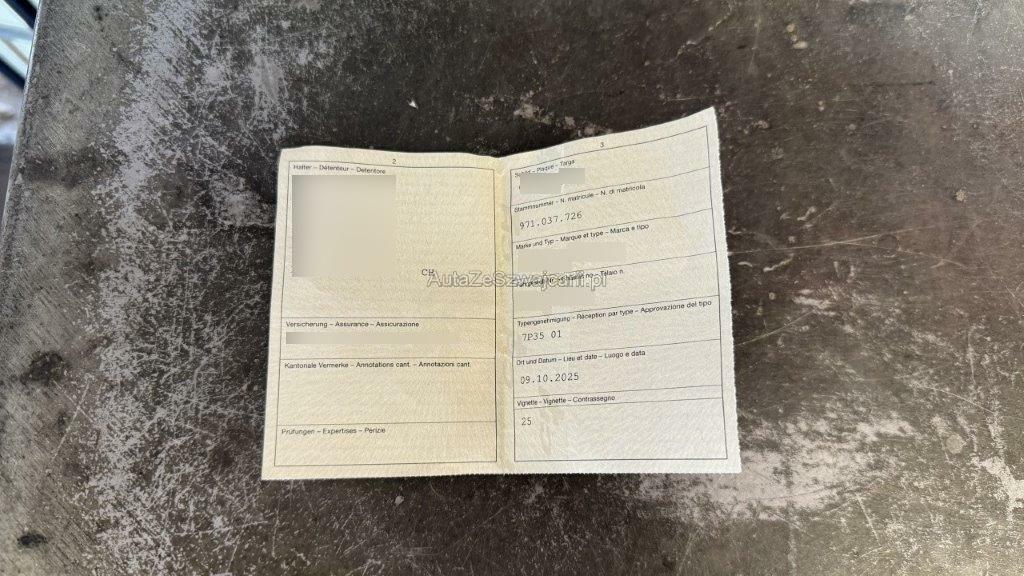 2
Halter – Détenteur – Detentore
CH
Versicherung – Assurance – Assicurazione
Kantonale Vermerke – Annotations cant. – Annotazioni cant.
Prüfungen – Expertises – Perizie
3
Schild – Plaque – Targa
Stammnummer – N. matricule – N. di matricola
971.037.726
Marke und Typ – Marque et type – Marca e tipo
no – Telaio n.
Typengenehmigung – Réception par type – Approvazione del tipo
7P35 01
Ort und Datum – Lieu et date – Luogo e data
09.10.2025
Vignette – Vignette – Contrassegno
25
AutaZeSzwajcarii.pl